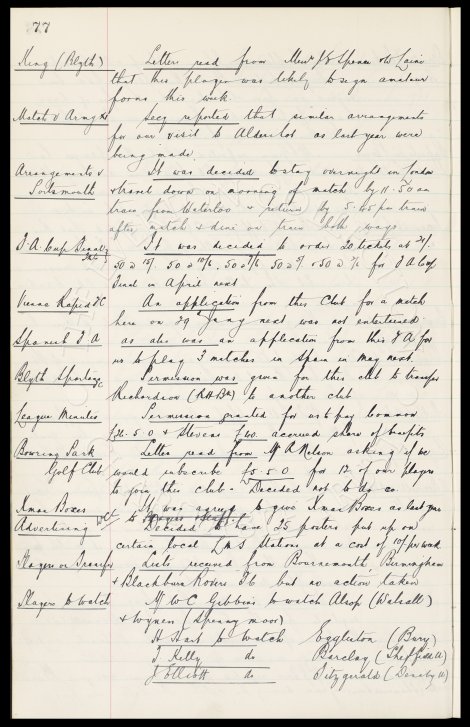 77
King (Blyth) Letter read from Messrs J H Spence & W Laine
that this player was likely to sign amateur
forms this week
Match v Army Secy reported that similar arrangements
for our visit to Aldershot as last year were
being made.
Arrangements v It was decided to stay overnight in London
Portsmouth & travel down on morning of match by 11.50 am
train from Waterloo & return by 5.45 pm train
after match & dine on train both ways
F.A. Cup Final It was decided to order 20 tickets at
50 @ 15/- 50 @ 10/6 50 @ 7/6 50 @ 5/- for F A Cup
Final in April next
Vienna Rapid FC An application from this Club for a match
here on 29 Jany next was not entertained.
Spanish F.A as also was an application from this F A for
us to play 3 matches in Spain in May next.
Blyth Spartans Permission was given for this club to transfer
Richardson to another club
League Minutes Permission granted for us to pay Common
& Stevens accrued share of benefits
Bowring Park Letter read from Mr A Nelson asking if we
Golf Club would subscribe £5-5-0 for 12 of our players
to join this club - Decided not to do so.
Xmas Boxes It was agreed to give Xmas Boxes as last year
Advertising Decided to have 25 posters put up on
certain local LMS Stations at a cost of 10/- per week
Players on Transfer Lists received from Bournemouth, Birmingham
& Blackburn Rovers Fc but no action taken
Players to watch Mr W C Gibbins to watch Alsop (Walsall)
& Wynen (Spennymoor)
A Hart to watch Eggleston (Bury)
J Kelly do Barclay (Sheffield U)
J Elliott do Fitzgerald (Denaby U)